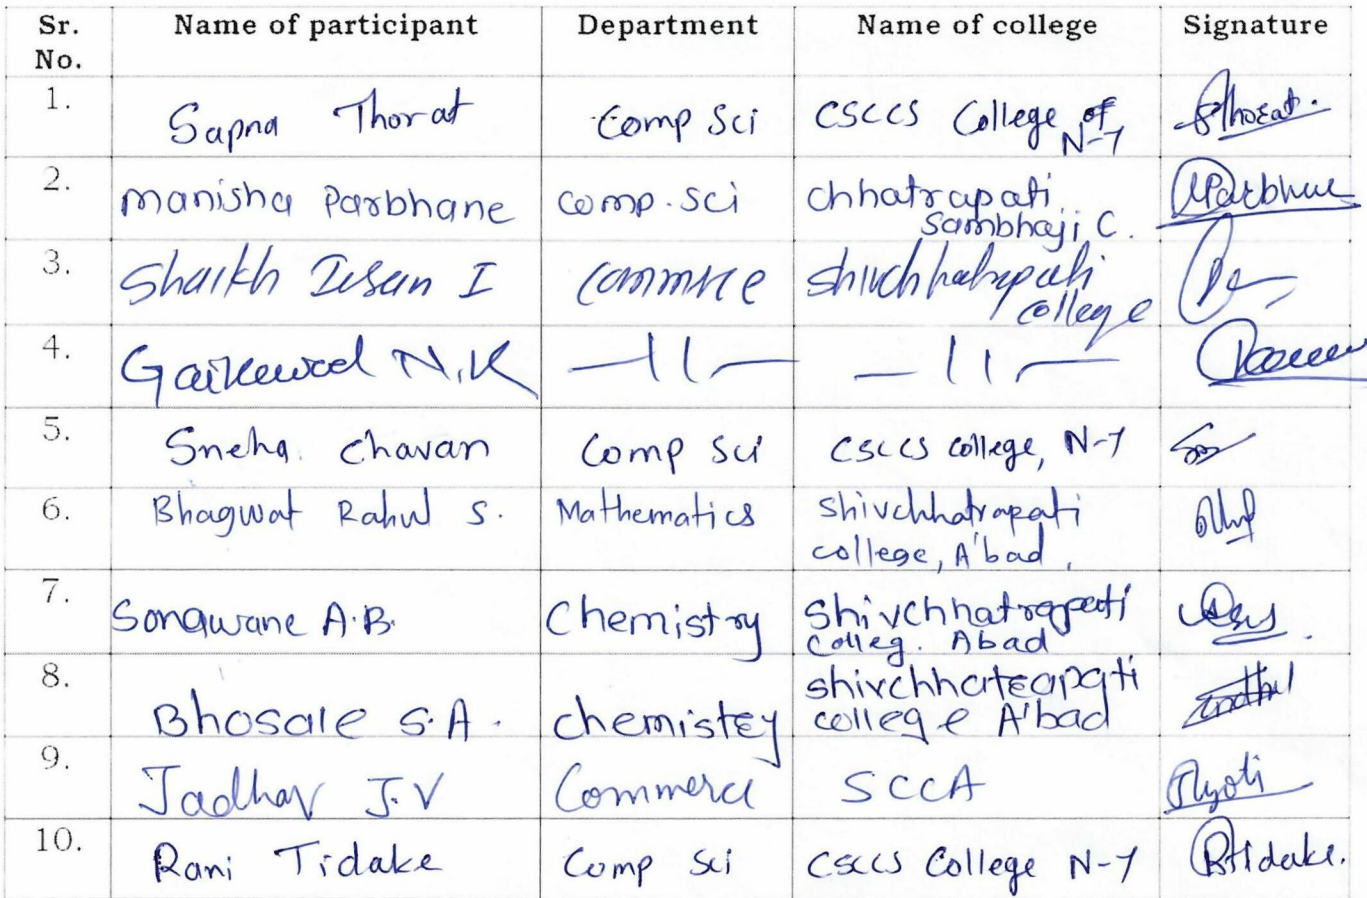 Sr. No. Name of participant Department Name of college Signature
1. Sapna Thorat Comp Sci CSCCS College of N-7 SThorat.
2. Manisha Parbhane comp. sci chhatrapati Sambhaji C.
3. Shaikh I commrce shivchhatrapati college
4. Gaikewad N.K —11— —11—
5. Sneha. Chavan Comp Sci CSCCS college, N-7
6. Bhagwat Rahul S. Mathematics shivchhatrapati college, A'bad,
7. Sonawane A.B. Chemistry Shivchhatrapati Colleg. Abad
8. Bhosale S.A. chemistry shivchhatrapati college A'bad
9. Jadhav J.V Commerce SCCA Jyoti
10. Rani Tidake Comp Sci CSCCS College N-7 RTidake.